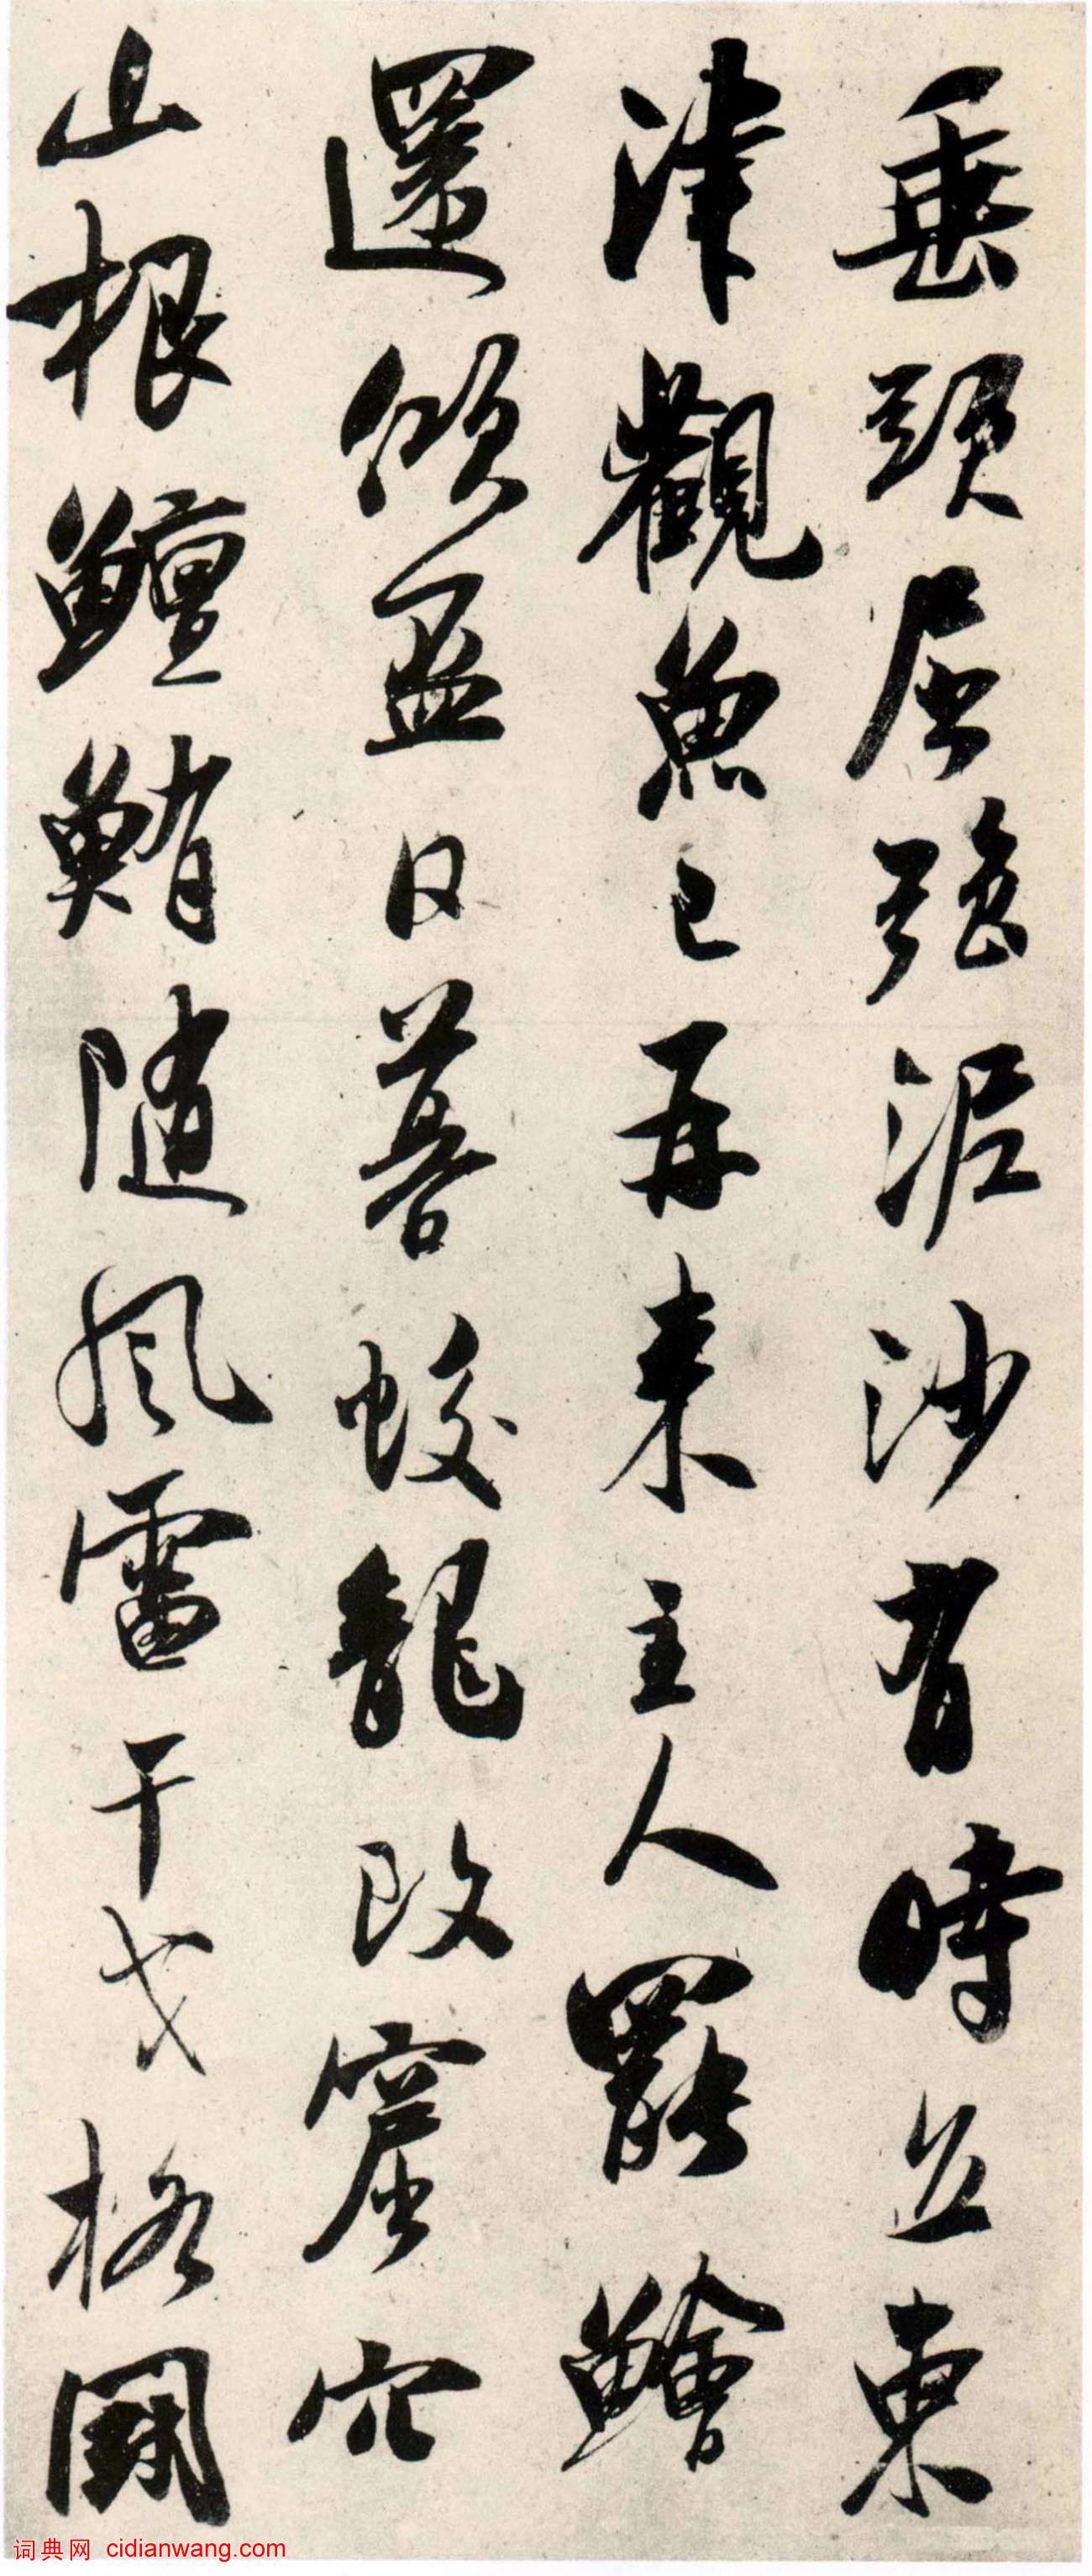 垂頭屈強泥沙有時立東
津觀魚已再来主人罷鱠
還傾盃日暮蛟龍改窟穴
山根鱣鮪隨風雷干戈格鬭
词典网 cidianwang.com